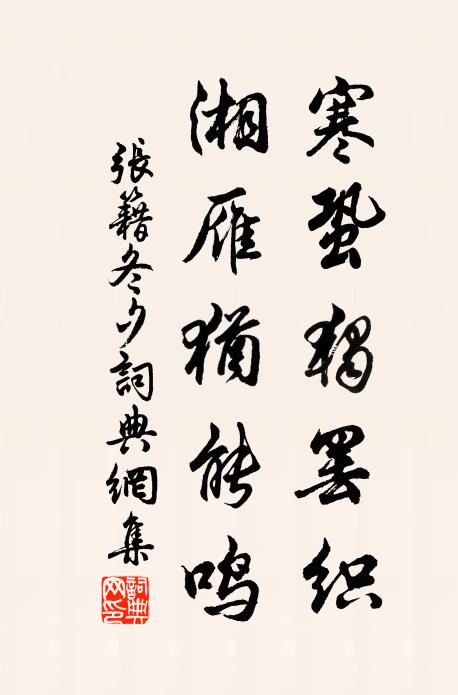 寒蛩独罢织
湘雁犹能鸣
張籍冬夕詞典網集
詞典網印